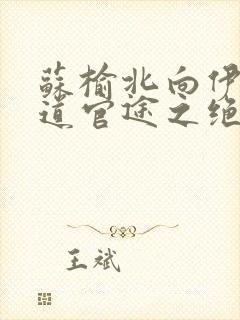 蘇榆北向伊
道官途之绝
王斌